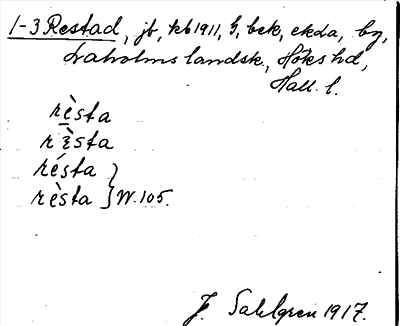 1-3 Restad, jb, kb 1911, G, bek, ekda, bg,
Laholms landsk, Höks hd,
Hall. l.
rèsta
rèsta
résta
rèsta } W. 105.
J. Sahlgren 1917.